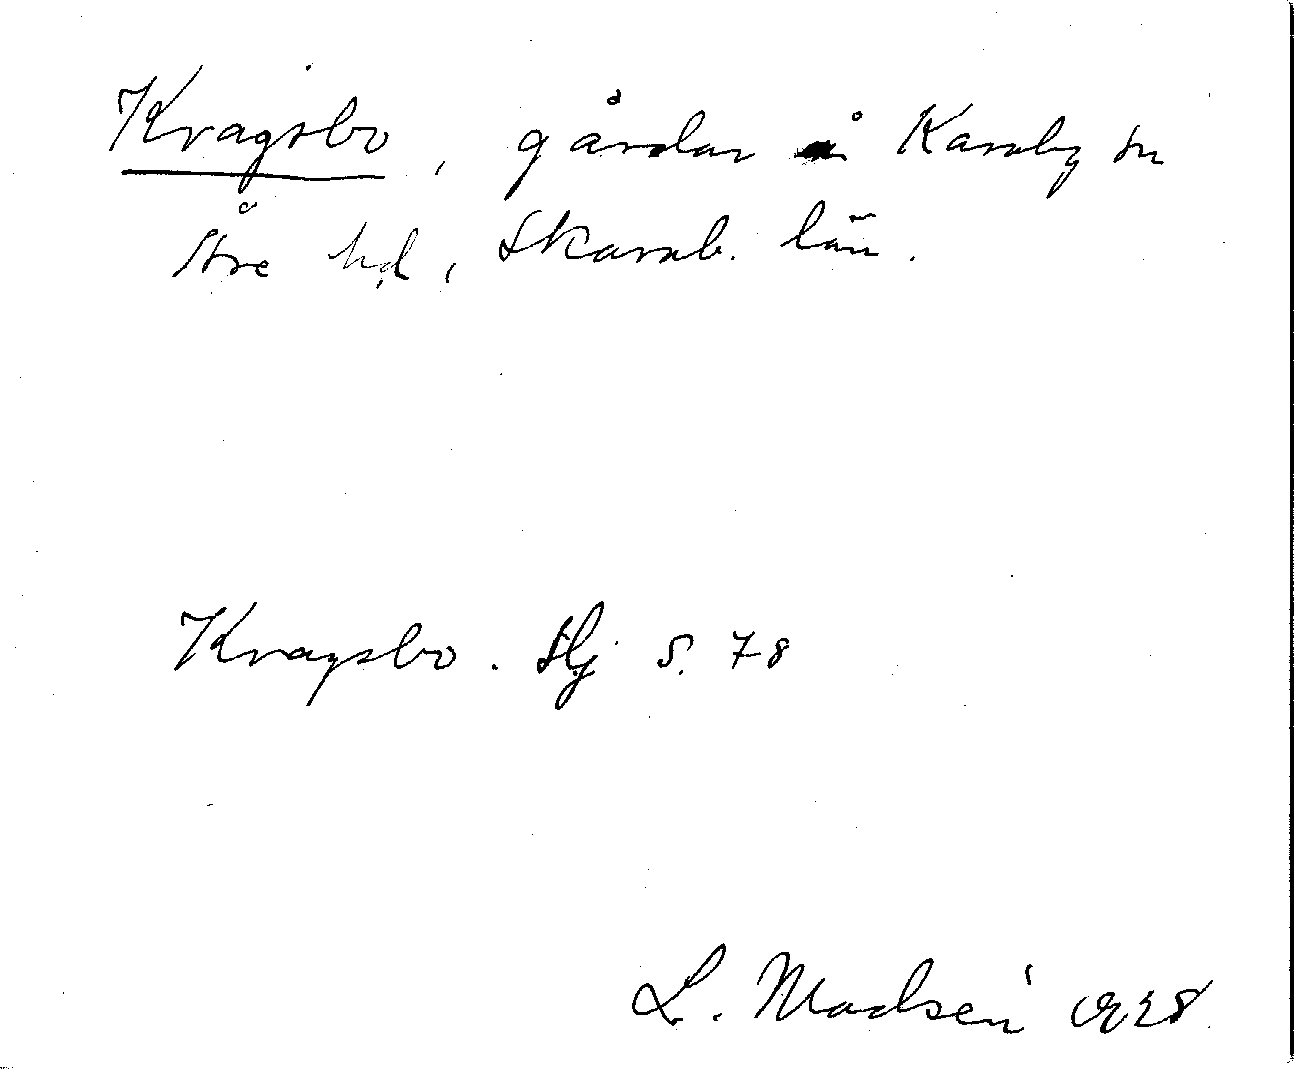 Kragsbo, gårdar i Karaby sn
Åse hd, Skarab. län.
Kragsbo. Hj S. 78
L. Madsén 1928